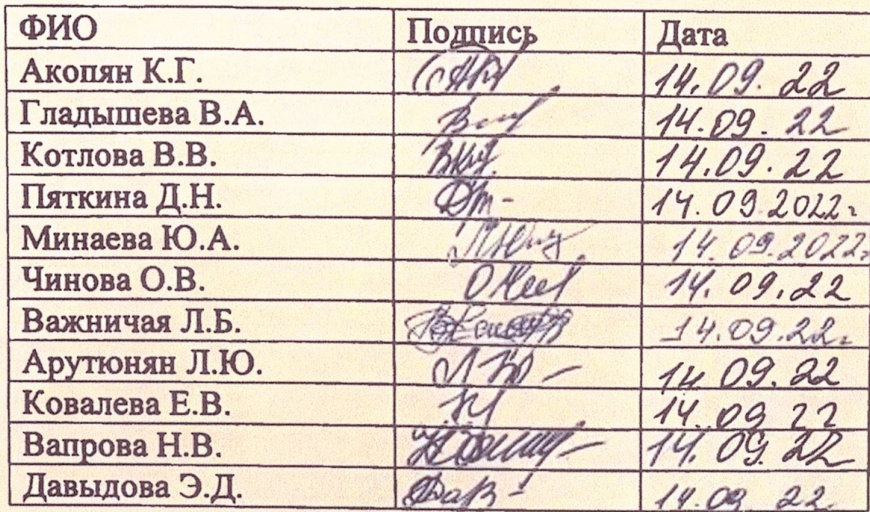 ФИО Подпись Дата
Акопян К.Г. 14.09.22
Гладышева В.А. 14.09.22
Котлова В.В. 14.09.22
Пяткина Д.Н. 14.09.2022г
Минаева Ю.А. 14.09.2022г
Чинова О.В. 14.09.22
Важничая Л.Б. 14.09.22г
Арутюнян Л.Ю. 14.09.22
Ковалева Е.В. 14.09 22
Вапрова Н.В. 14.09.22
Давыдова Э.Д. 14.09 22